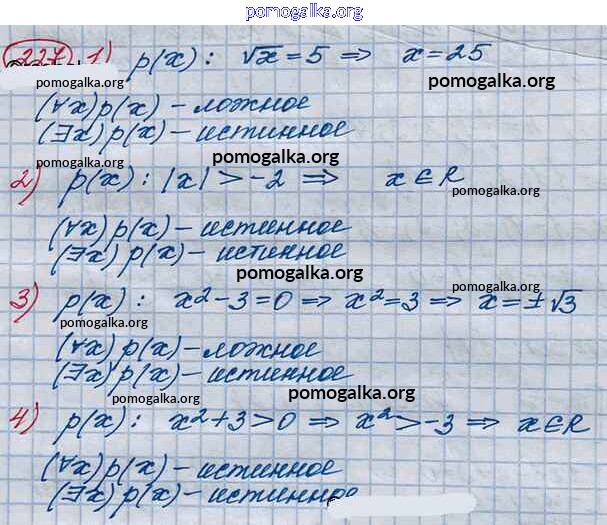 pomogalka.org
227 1) p(x): √x = 5 ⇒ x = 25
pomogalka.org pomogalka.org
(∀x)p(x) – ложное
pomogalka.org
(∃x) p(x) – истинное
pomogalka.org pomogalka.org
2) p(x): |x| > -2 ⇒ x ∈ R
pomogalka.org
(∀x) p(x) – истинное
(∃x) p(x) – истинное
pomogalka.org
pomogalka.org
3) p(x): x² - 3 = 0 ⇒ x² = 3 ⇒ x = ±√3
pomogalka.org
(∀x) p(x) – ложное
(∃x) p(x) – истинное
pomogalka.org pomogalka.org
4) p(x): x² + 3 > 0 ⇒ x² > -3 ⇒ x ∈ R
pomogalka.org
(∀x) p(x) – истинное
(∃x) p(x) – истинное